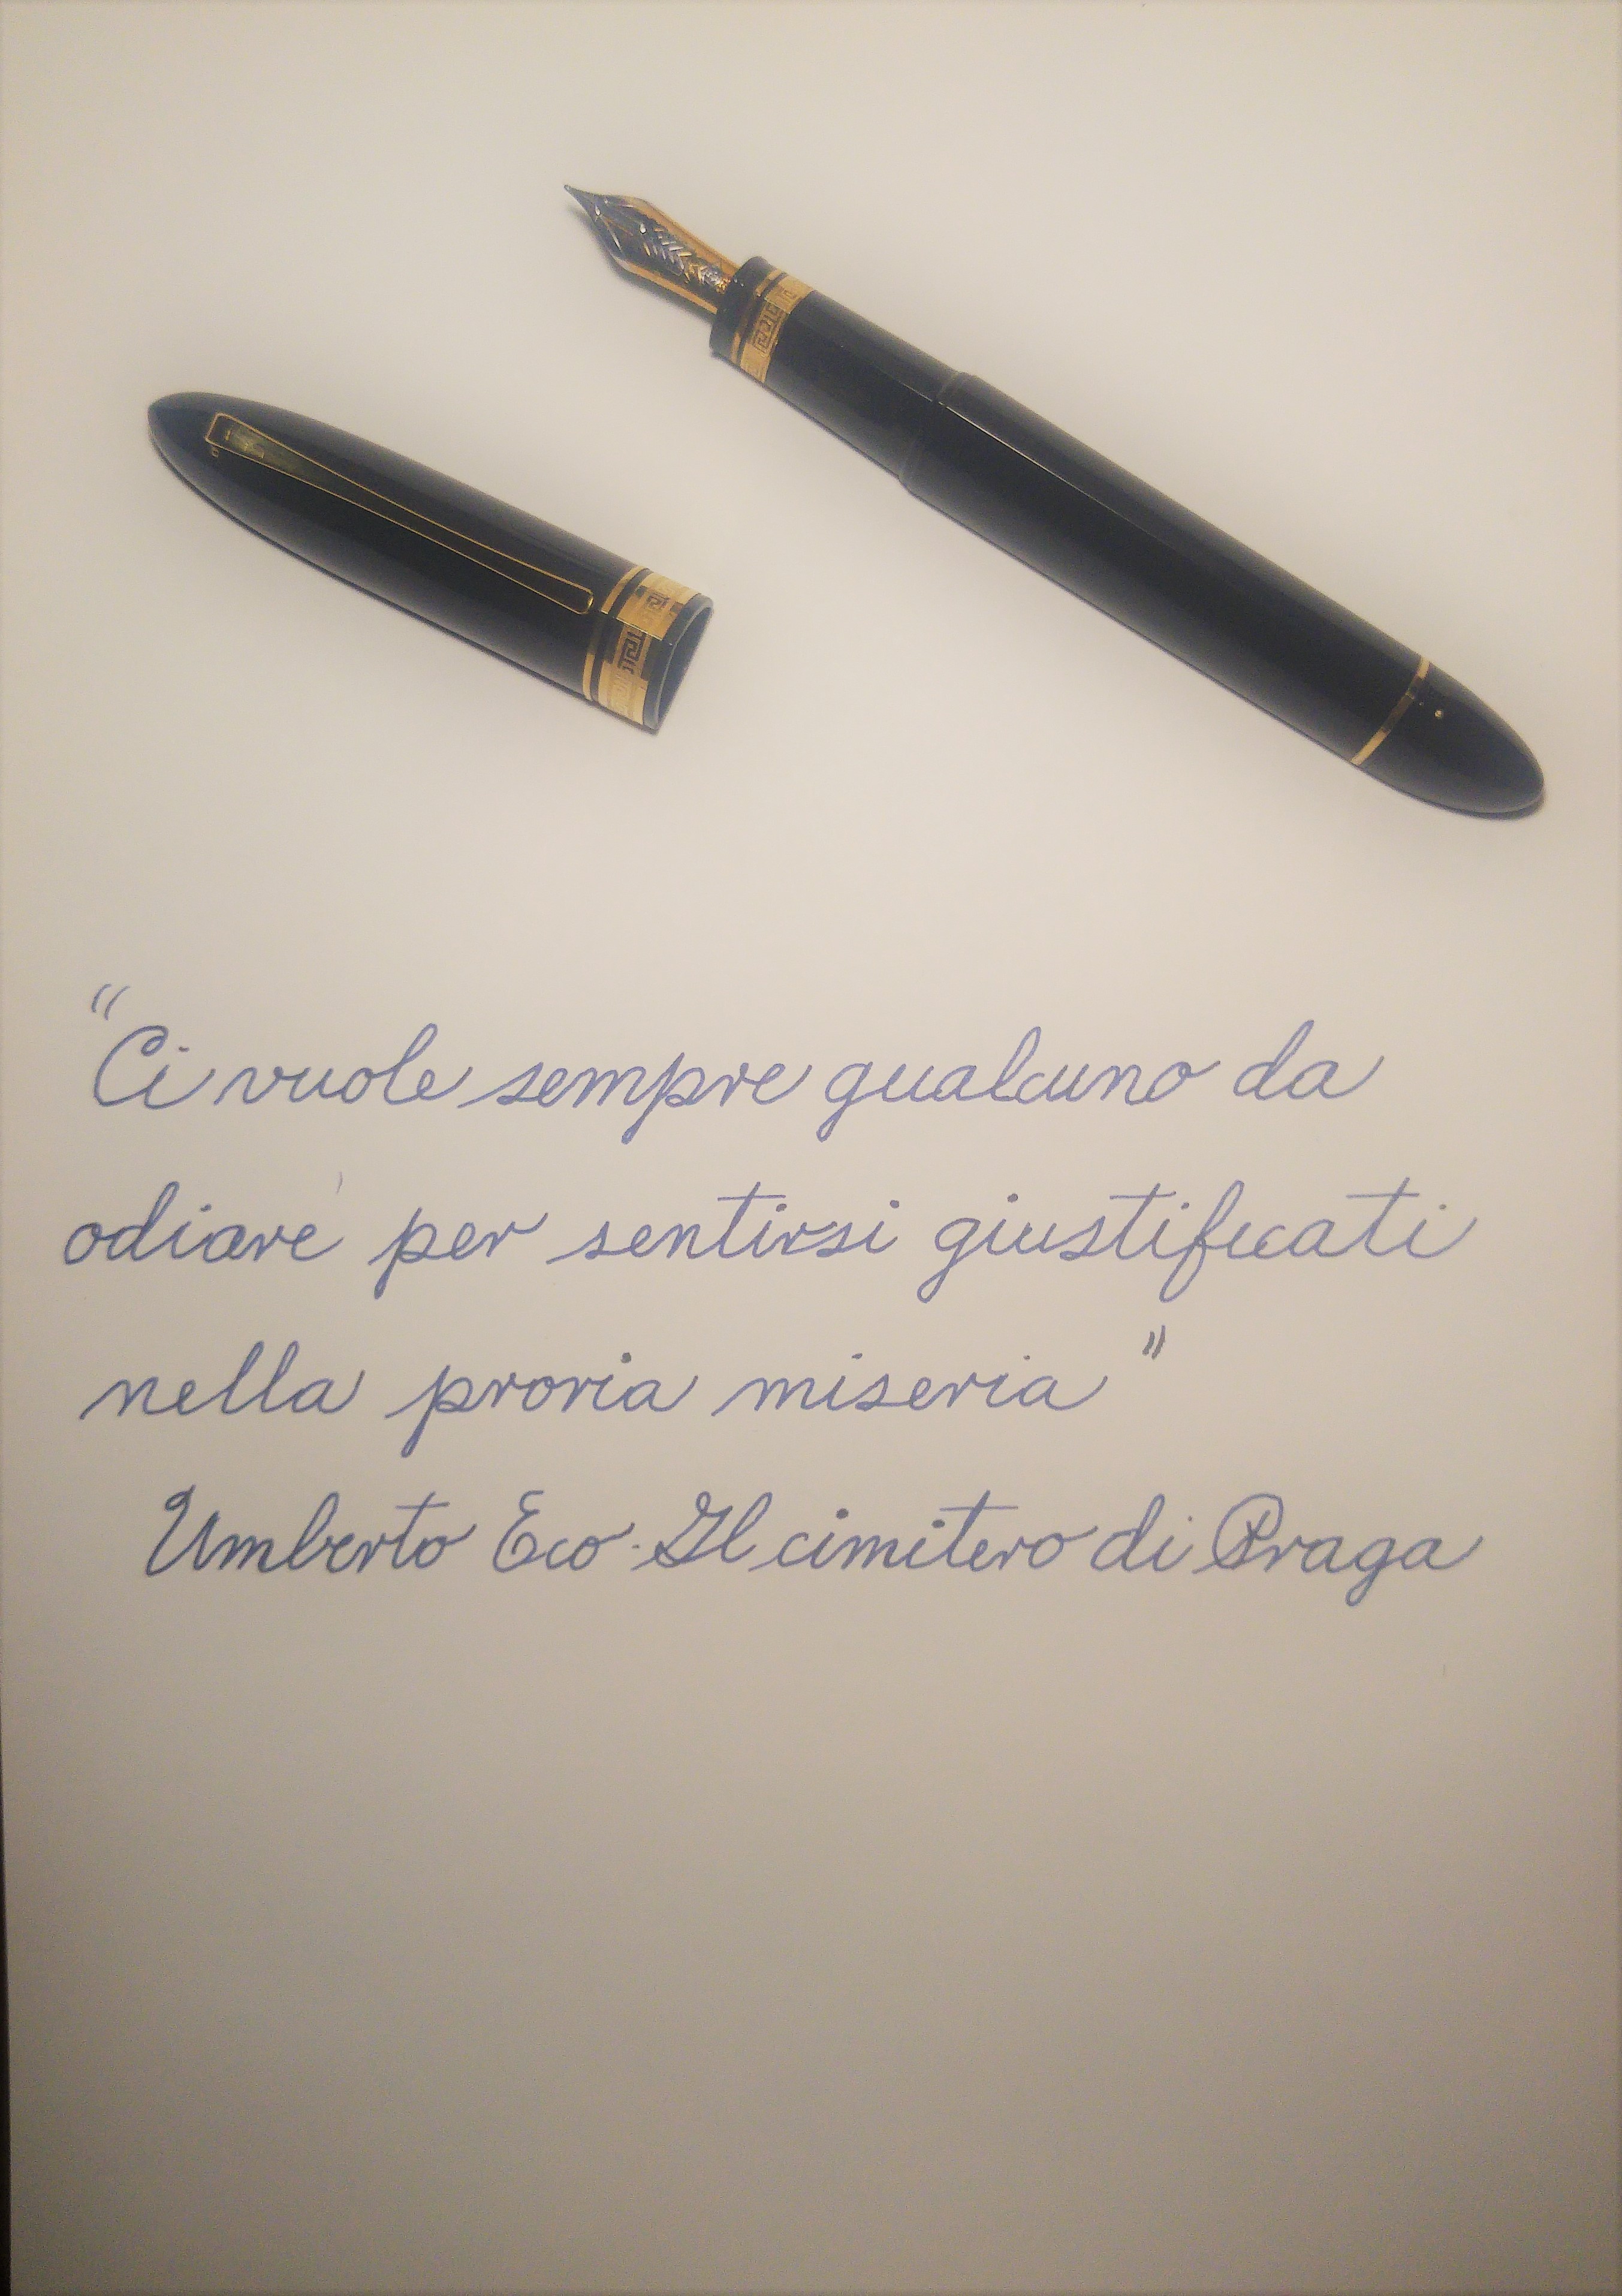 "Ci vuole sempre qualcuno da
odiare per sentirsi giustificati
nella proria miseria"
Umberto Eco. Il cimitero di Praga